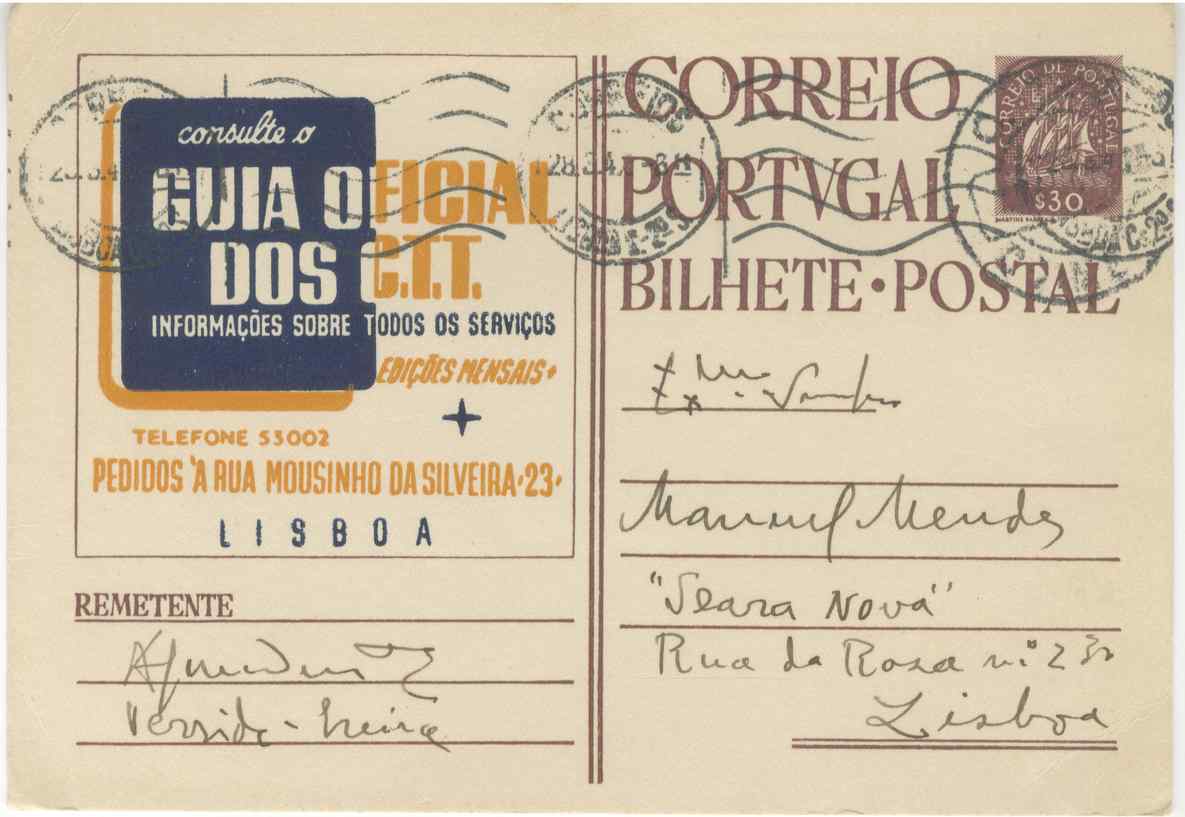 consulte o
GUIA OFICIAL
DOS C.T.T.
INFORMAÇÕES SOBRE TODOS OS SERVIÇOS
EDIÇÕES MENSAIS
TELEFONE 53002
PEDIDOS 'A RUA MOUSINHO DA SILVEIRA·23·
LISBOA
REMETENTE
CORREIO
PORTVGAL
BILHETE·POSTAL
CORREIO DE PORTUGAL
$30
CORREIOS
Manuel Mendes
"Seara Nova"
Rua da Rosa nº
Lisboa